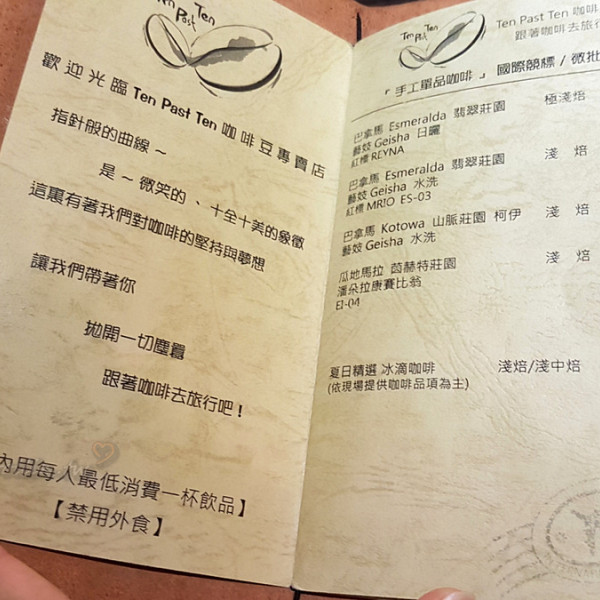 Ten Past Ten
歡迎光臨 Ten Past Ten 咖啡豆專賣店
指針般的曲線～
是～微笑的、十全十美的象徵
這裏有著我們對咖啡的堅持與夢想
讓我們帶著你
拋開一切塵囂
跟著咖啡去旅行吧！
內用每人最低消費一杯飲品】
【禁用外食】
Ten Past Ten
Ten Past Ten 咖啡
跟著咖啡去旅行
「手工單品咖啡」 國際競標/微批
巴拿馬 Esmeralda 翡翠莊園 極淺焙
藝妓 Geisha 日曬
紅標 REYNA
巴拿馬 Esmeralda 翡翠莊園 淺 焙
藝妓 Geisha 水洗
紅標 MRIO ES-03
巴拿馬 Kotowa 山脈莊園 柯伊 淺 焙
藝妓 Geisha 水洗
瓜地馬拉 茵赫特莊園 淺 焙
潘朵拉康賽比翁
EI-04
夏日精選 冰滴咖啡 淺焙/淺中焙
(依現場提供咖啡品項為主)